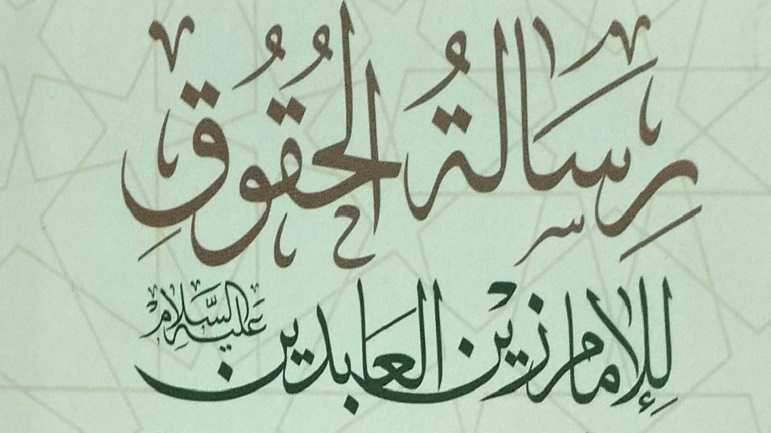 رِسَالَةُ الحُقُوقِ
لِلإمام زين العابدين عليه السلام